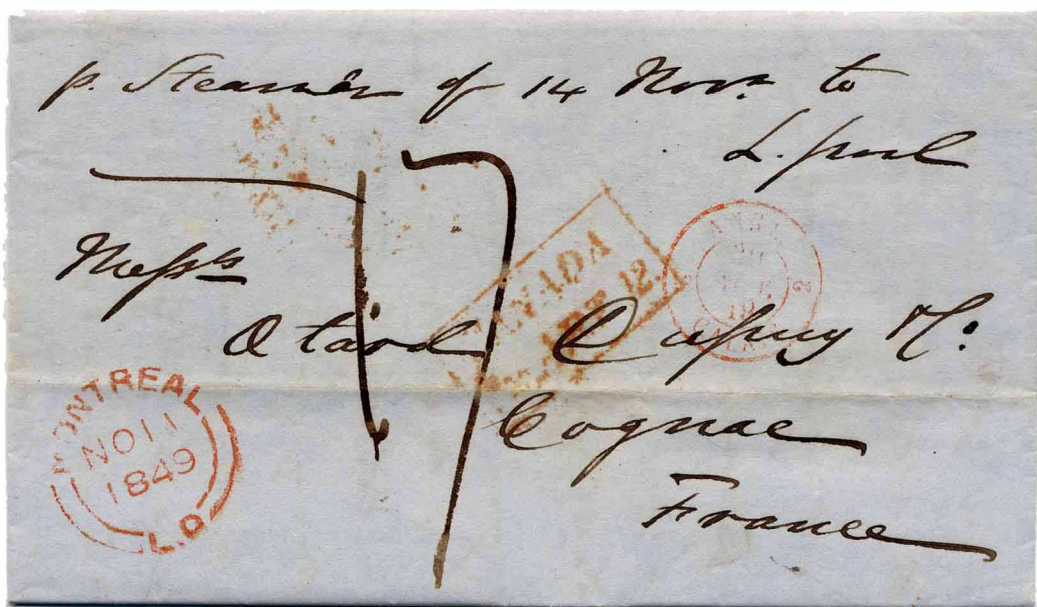 p. Steamer of 14 Novr. to
L.pool
17
Messrs
Otard Dupuy & Co:
Cognac
France
CANADA
ART 12.
2 2
CALAIS
MONTREAL
NO 11
1849
L.C